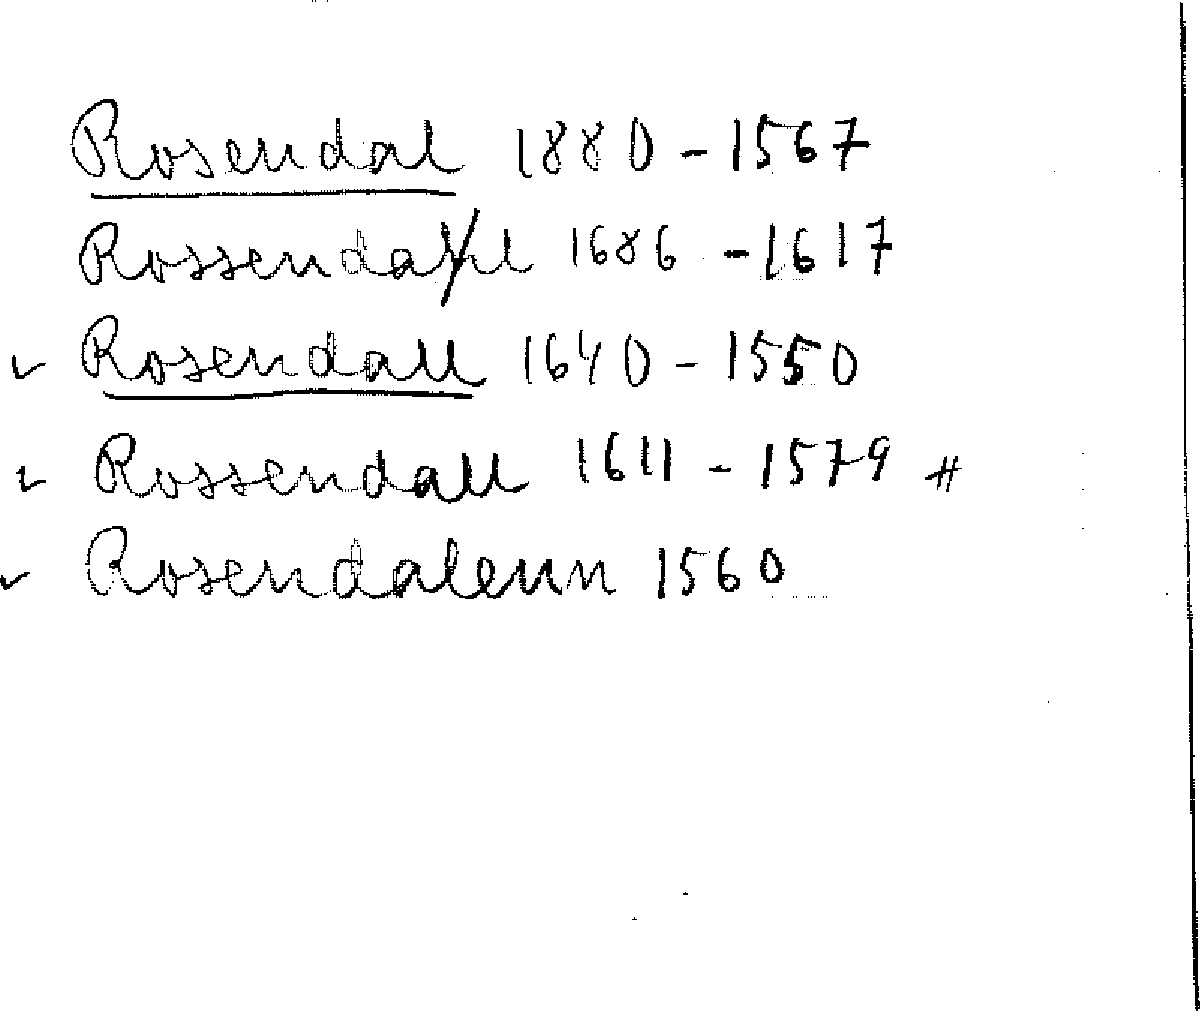 Rosendal 1880 - 1567
Rossendahl 1686 - 1617
✓ Rosendall 1640 - 1550
✓ Rossendall 1611 - 1579 #
✓ Rosendalenn 1560